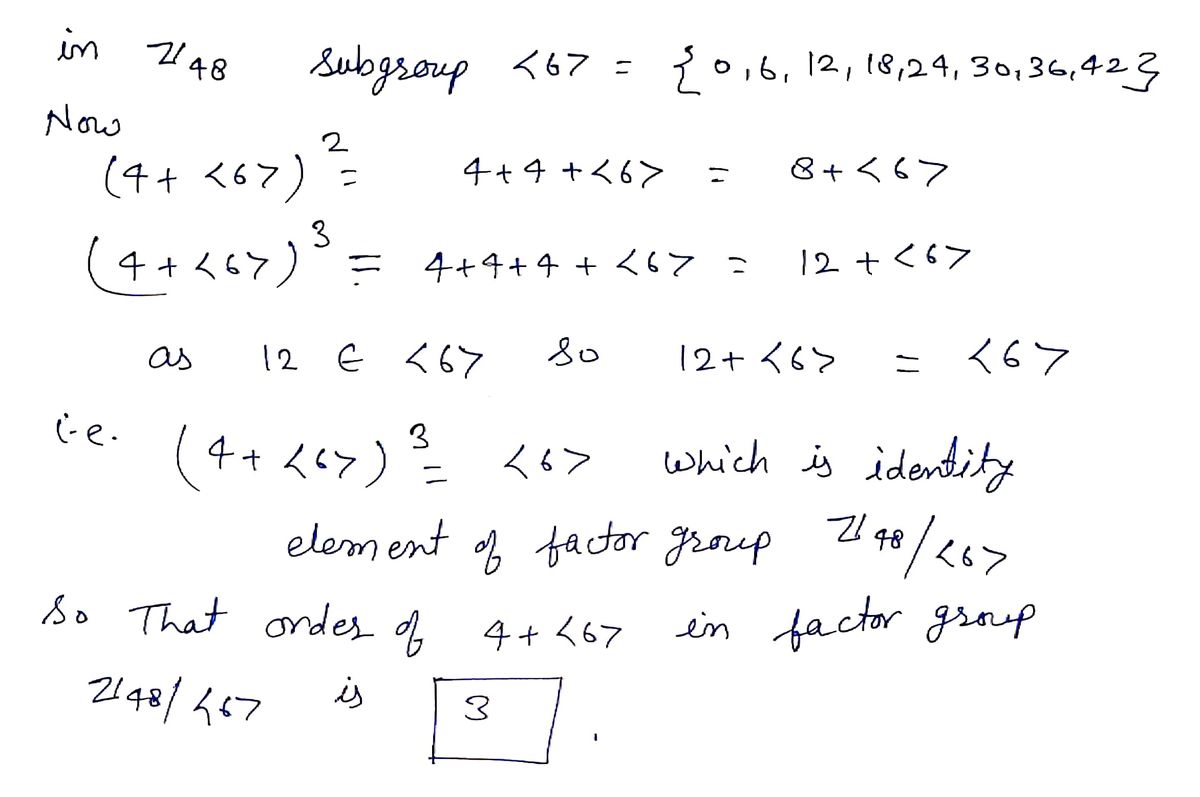 in ℤ48 subgroup <6> = {0,6, 12, 18,24, 30,36,42}
Now
(4+ <6>)² = 4+4 +<6> = 8+<6>
(4+<6>)³ = 4+4+4 + <6> = 12 +<6>
as 12 ∈ <6> so 12+ <6> = <6>
i.e. (4+ <6>)³ = <6> which is identity
element of factor group ℤ48/<6>
So That order of 4+ <6> in factor group
ℤ48/<6> is 3 .